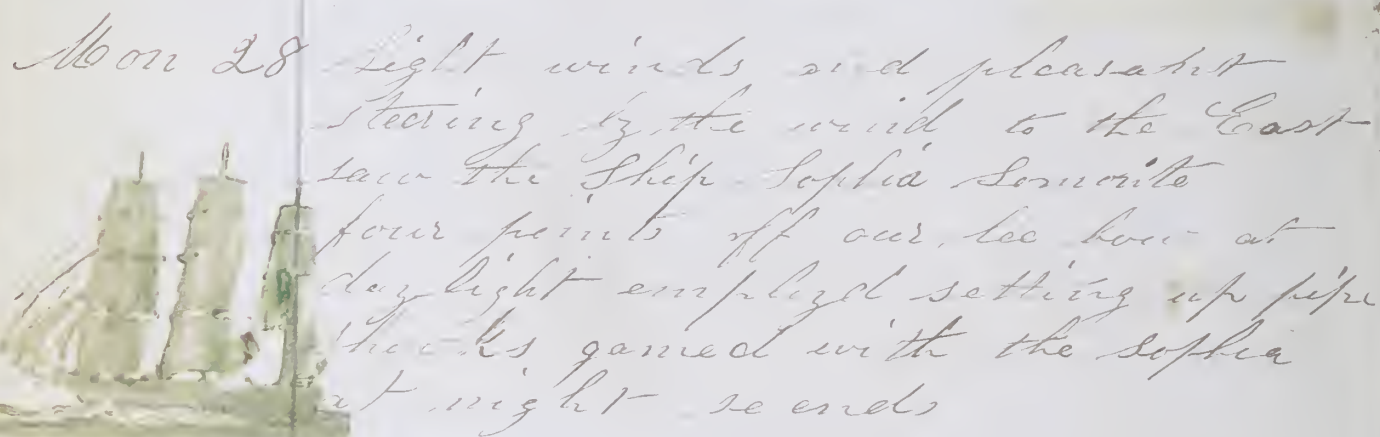 Mon 28 light winds and pleasahst
steering by the wind to the East
saw the Ship Sophia
four points off our lee bow at
day light employd setting up pipe
gamed with the Sophia
at night so ends